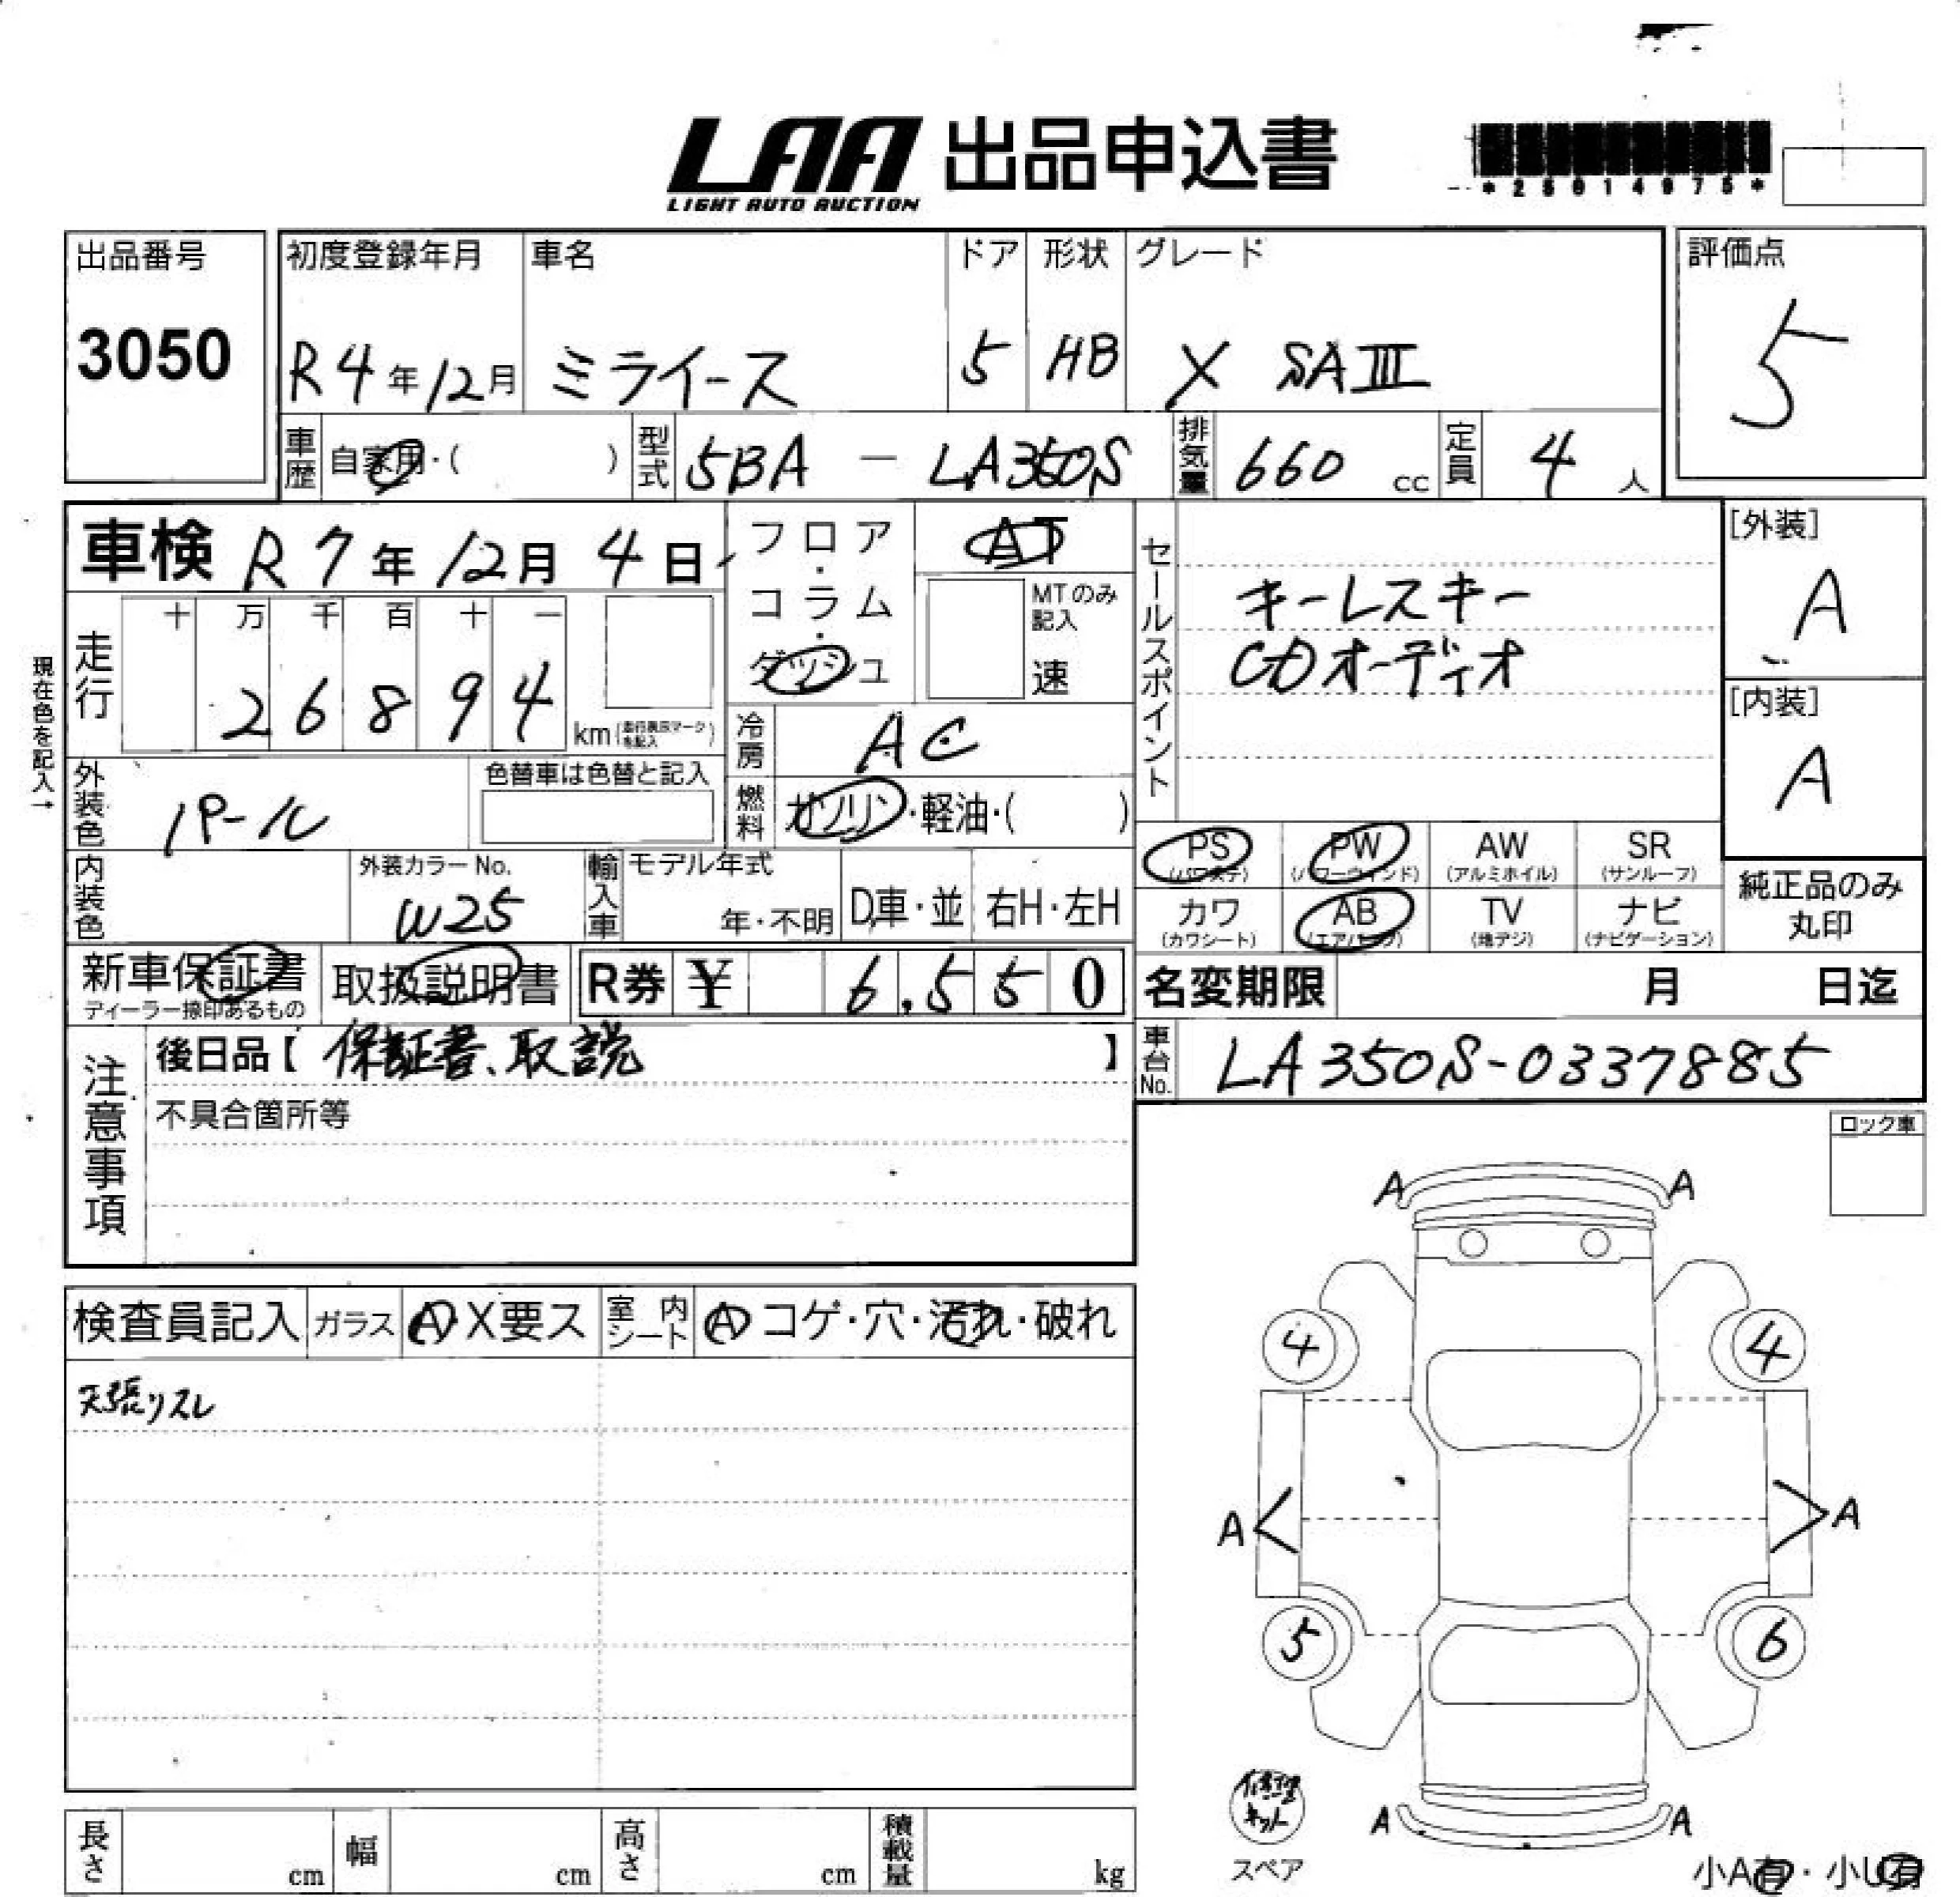 LAA 出品申込書
LIGHT AUTO AUCTION
出品番号 初度登録年月 車名 ドア 形状 グレード 評価点
3050 R4年12月 ミライース 5 HB X SAⅢ 5
車歴 自家用・( ) 型式 5BA - LA350S 排気量 660 cc 定員 4 人
車検 R7年12月4日 フロア・コラム・ダッシュ AT
MTのみ記入 速
セールスポイント
キーレスキー
CDオーディオ
[外装]
A
[内装]
A
現在色を記入→
走行 十 万 千 百 十 一
2 6 8 9 4 km
冷房 AC
外装色 パール 色替車は色替と記入
燃料 ガソリン・軽油・( )
PS (パワステ) PW (パワーウインド) AW (アルミホイル) SR (サンルーフ)
カワ (カワシート) AB (エアバッグ) TV (地デジ) ナビ (ナビゲーション)
純正品のみ
丸印
内装色 外装カラーNo. W25 輸入車 モデル年式 年・不明 D車・並 右H・左H
新車保証書 取扱説明書 R券 ¥ 6,550
ディーラー捺印あるもの
名変期限 月 日迄
注意事項
後日品【 保証書、取説 】
車台No. LA350S-0337885
不具合箇所等
ロック車
A A
検査員記入 ガラス A X要ス 室内シート A コゲ・穴・汚れ・破れ
天張リスレ
4 4
A A
5 6
修理キット
スペア
A A
長さ cm 幅 cm 高さ cm 積載量 kg
小A有・小U有